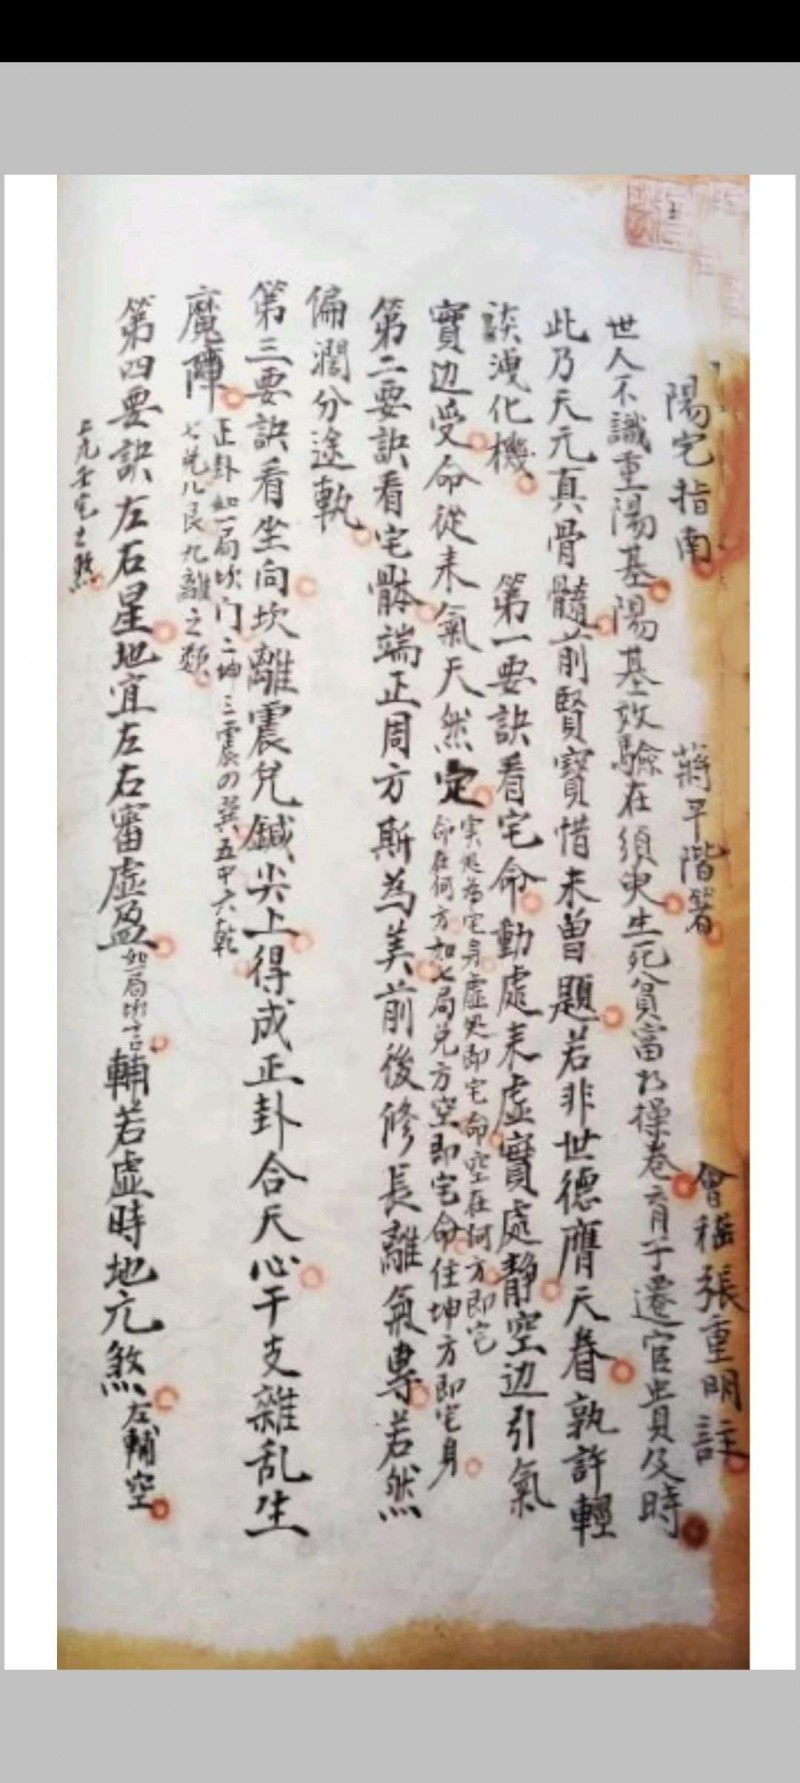 陽宅指南 蔣平階著 會稽張重明註
世人不識重陽基陽基效驗在須臾生死貧富於操卷育子遷官貴及時
此乃天元真骨髓前賢寶惜未曾題若非世德膺天眷孰許輕
談洩化機 第一要訣看宅命動處来虛實處靜空边引氣
實边受命從来氣天然定 实处為宅身虛处即宅命空在何方即宅
命在何方如七局兌方空即宅命住坤方即宅身
第二要訣看宅骵端正周方斯為美前後修長離氣專若然
偏濶分途執
第三要訣看坐向坎離震兌鍼尖上得成正卦合天心干支雜乱生
魔陣 正卦如一局坎门二坤三震の巽五中六乾
七兌八艮九離之類
第四要訣左右星地宜左右審虛盈 輔若虛時地元煞 左輔空